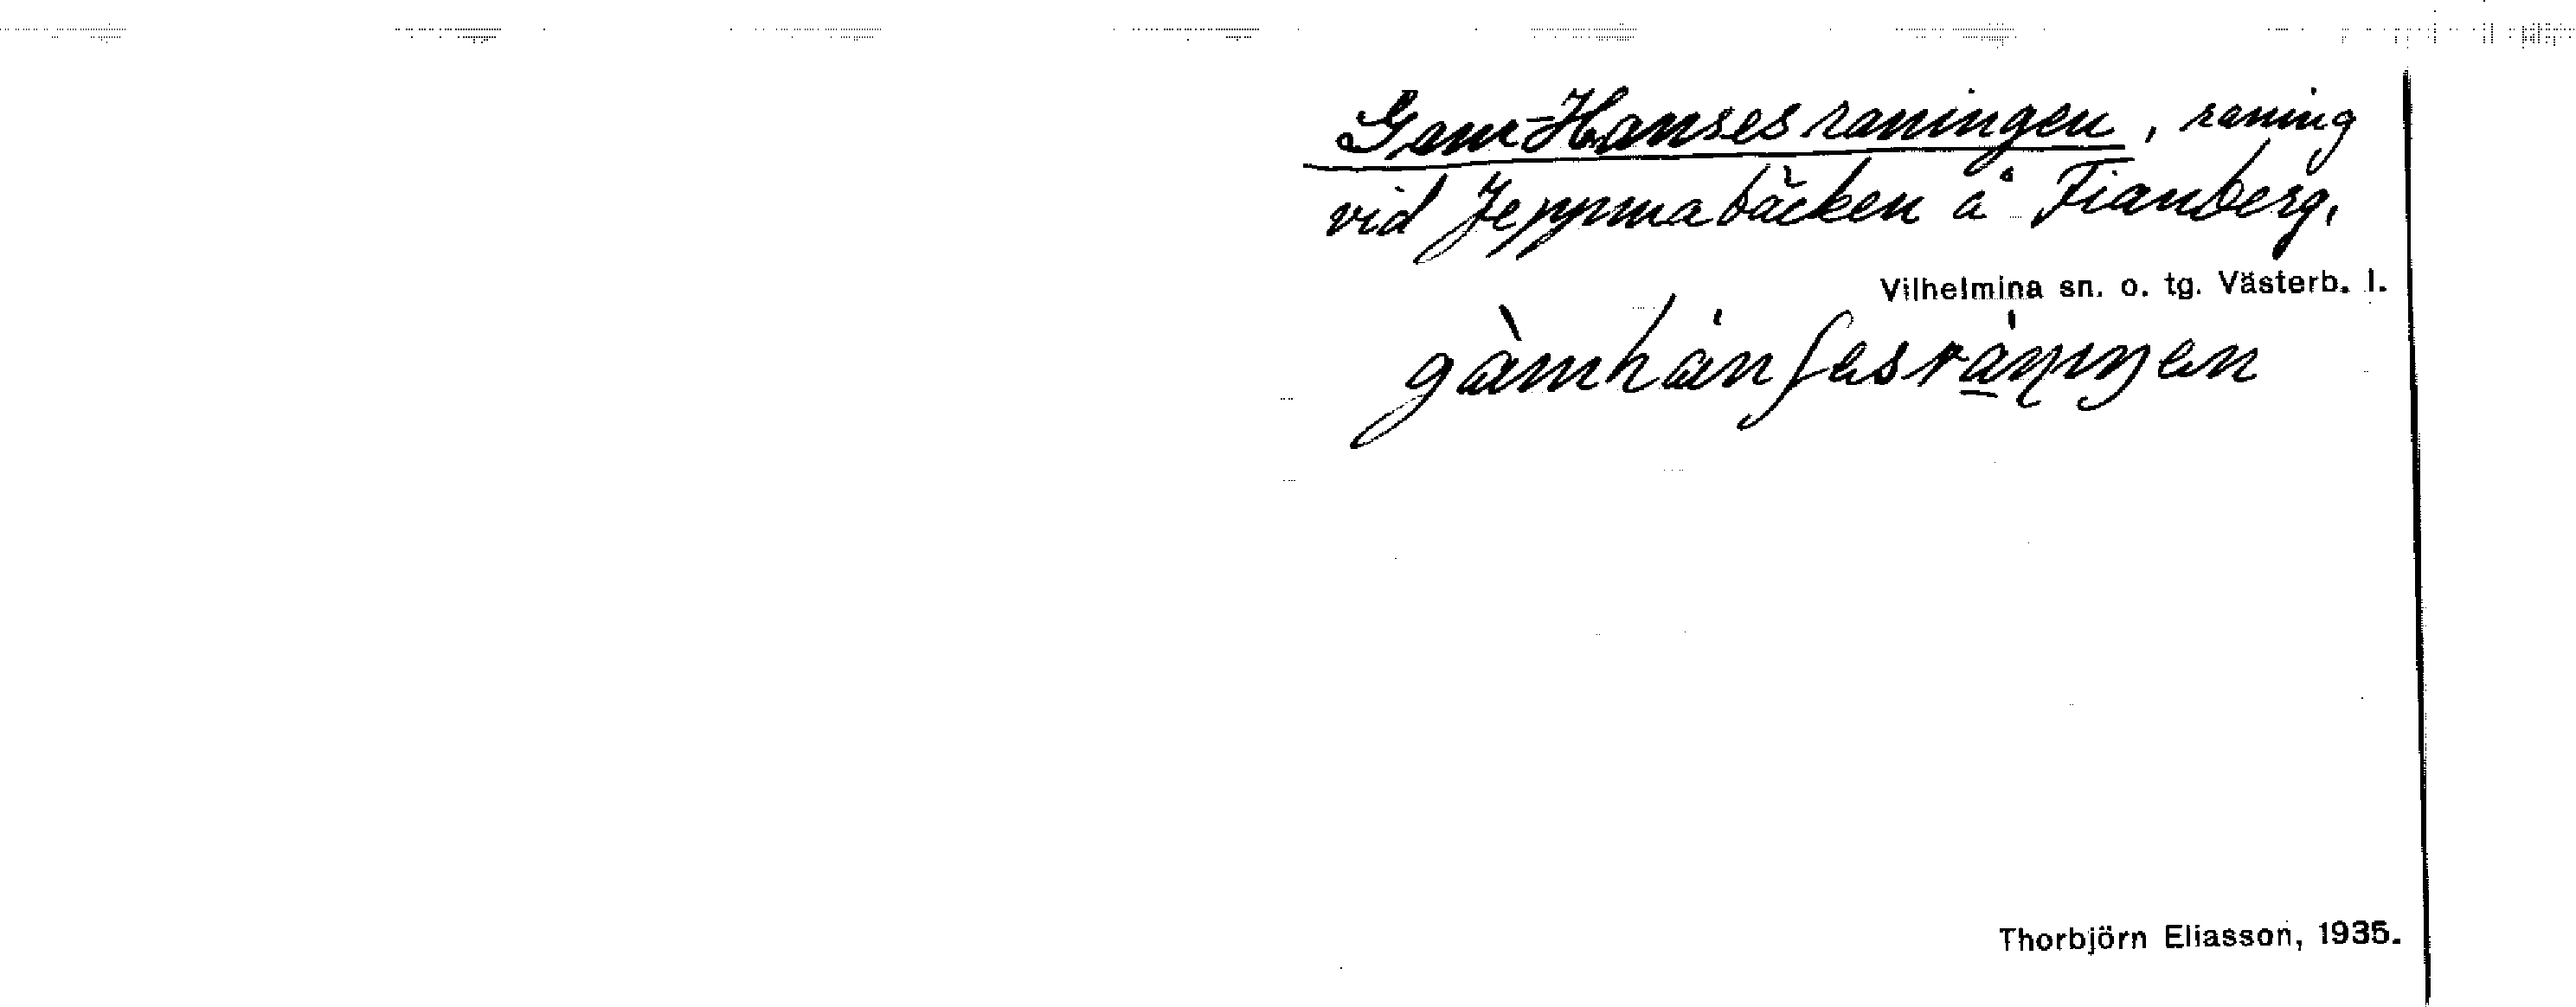 Gam-Hansesraningen, raning
vid Jeppmabäcken å Fianberg,
Vilhelmina sn. o. tg. Västerb. l.
Thorbjörn Eliasson, 1935.